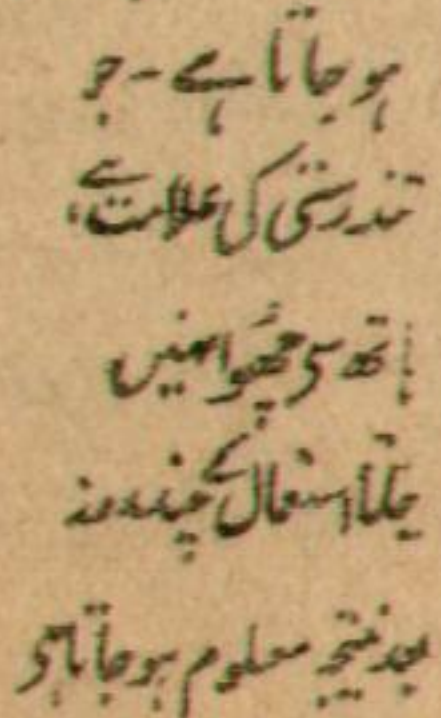 ہو جاتا ہے - جو
تندرستی کی علامت ہے،
ہاتھ سے چھوا نہیں
جاتا استعمال کے چند روز
بعد نتیجہ معلوم ہو جاتا ہے